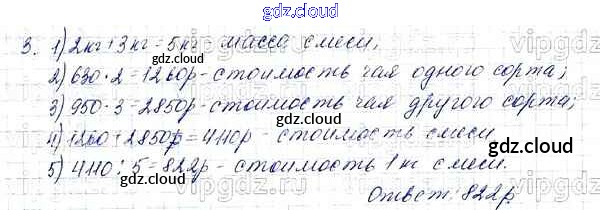 gdz.cloud
3. 1) 2кг+3кг=5кг масса смеси;
2) 630·2=1260р-стоимость чая одного сорта;
3) 950·3=2850р-стоимость чая другого сорта;
4) 1260+2850р=4110р-стоимость смеси
5) 4110:5=822р-стоимость 1кг смеси.
Ответ:822р.